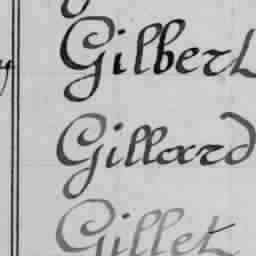 Gilbert
Gillard
Gillet